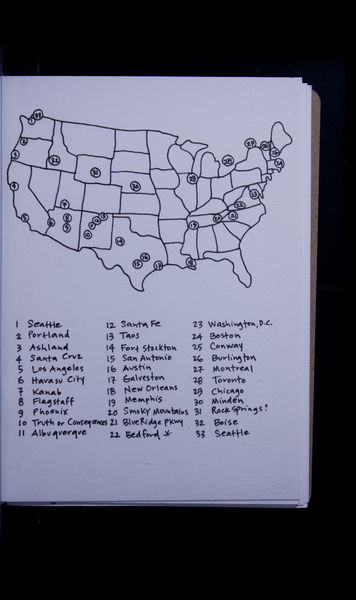 1 Seattle
2 Portland
3 Ashland
4 Santa Cruz
5 Los Angeles
6 Havasu City
7 Kanab
8 Flagstaff
9 Phoenix
10 Truth or Consequences
11 Albuquerque
12 Santa Fe
13 Taos
14 Fort Stockton
15 San Antonio
16 Austin
17 Galveston
18 New Orleans
19 Memphis
20 Smoky Mountains
21 Blue Ridge Pkwy
22 Bedford *
23 Washington, D.C.
24 Boston
25 Conway
26 Burlington
27 Montreal
28 Toronto
29 Chicago
30 Minden
31 Rock Springs?
32 Boise
33 Seattle